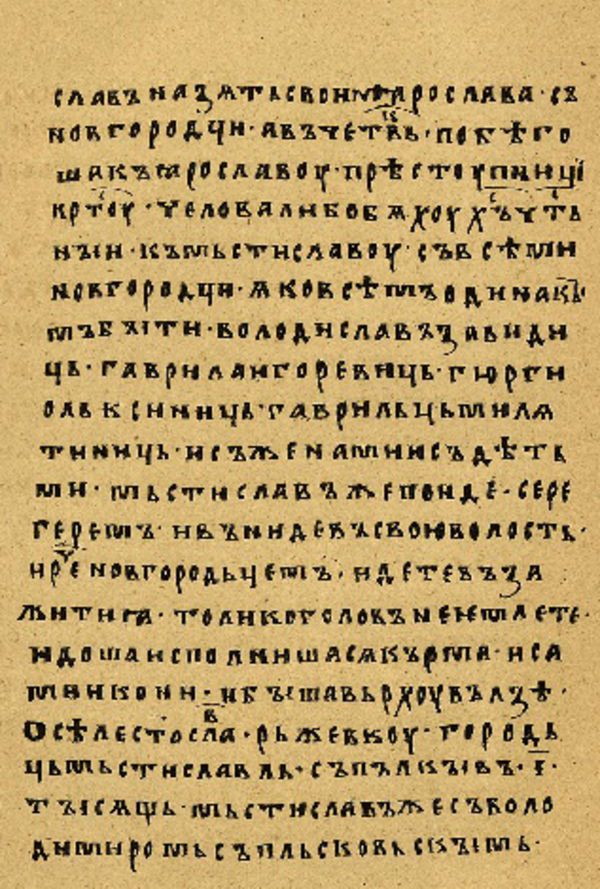 славъ на зѧть свои ꙗрослава · съ
новгородци · а въ четвь҃ · побѣго
ша къ ꙗрославоу · прѣстоупници
крⷭ҇тоу · человали бо бѧхоу хъ чть
нꙑи · къ мьстиславоу · съ всѣми
новгородци · ѧко всѣмъ одинакꙑ
мъ бꙑти · володиславъ завиди
ць · гаврила игоревиць · гюрги
ольксиниць · гаврильць милѧ
тиниць · и съ женами и съ дѣть
ми · мьстиславъ же поиде · сере
геремъ · и въниде въ свою волость ·
и реⷱ҇ новгородьчемъ · идете въ за
житиꙗ · толико головъ не емлете ·
идоша исполнишасѧ кърма · и са
ми и кони · и бꙑша вьрхоу вълзѣ ·
Осѣле ст҃осла҃въ · рьжевкоу · городь
ць мьстиславль · съ пълкꙑ въ · і҃ ·
тꙑсѧщь · мьстиславъ же съ воло
димиромь съ пльсковьскꙑмь ·